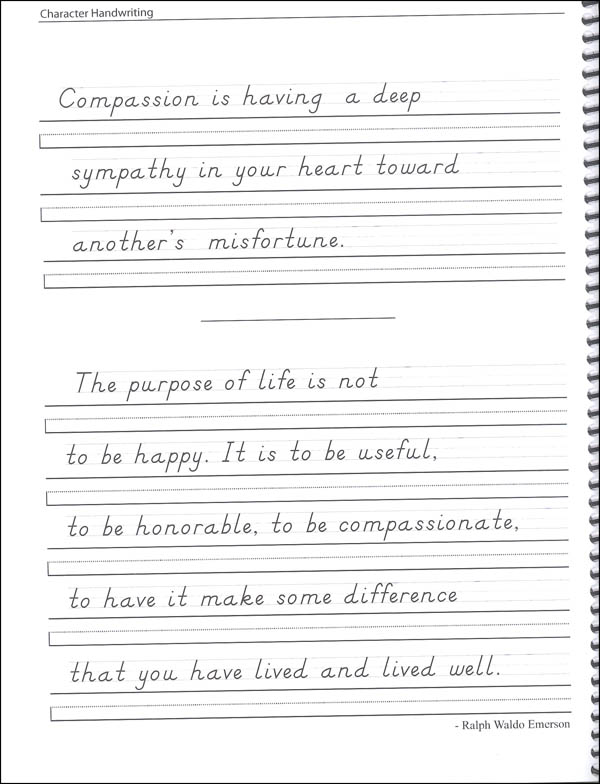 Character Handwriting
Compassion is having a deep
sympathy in your heart toward
another's misfortune.
The purpose of life is not
to be happy. It is to be useful,
to be honorable, to be compassionate,
to have it make some difference
that you have lived and lived well.
- Ralph Waldo Emerson